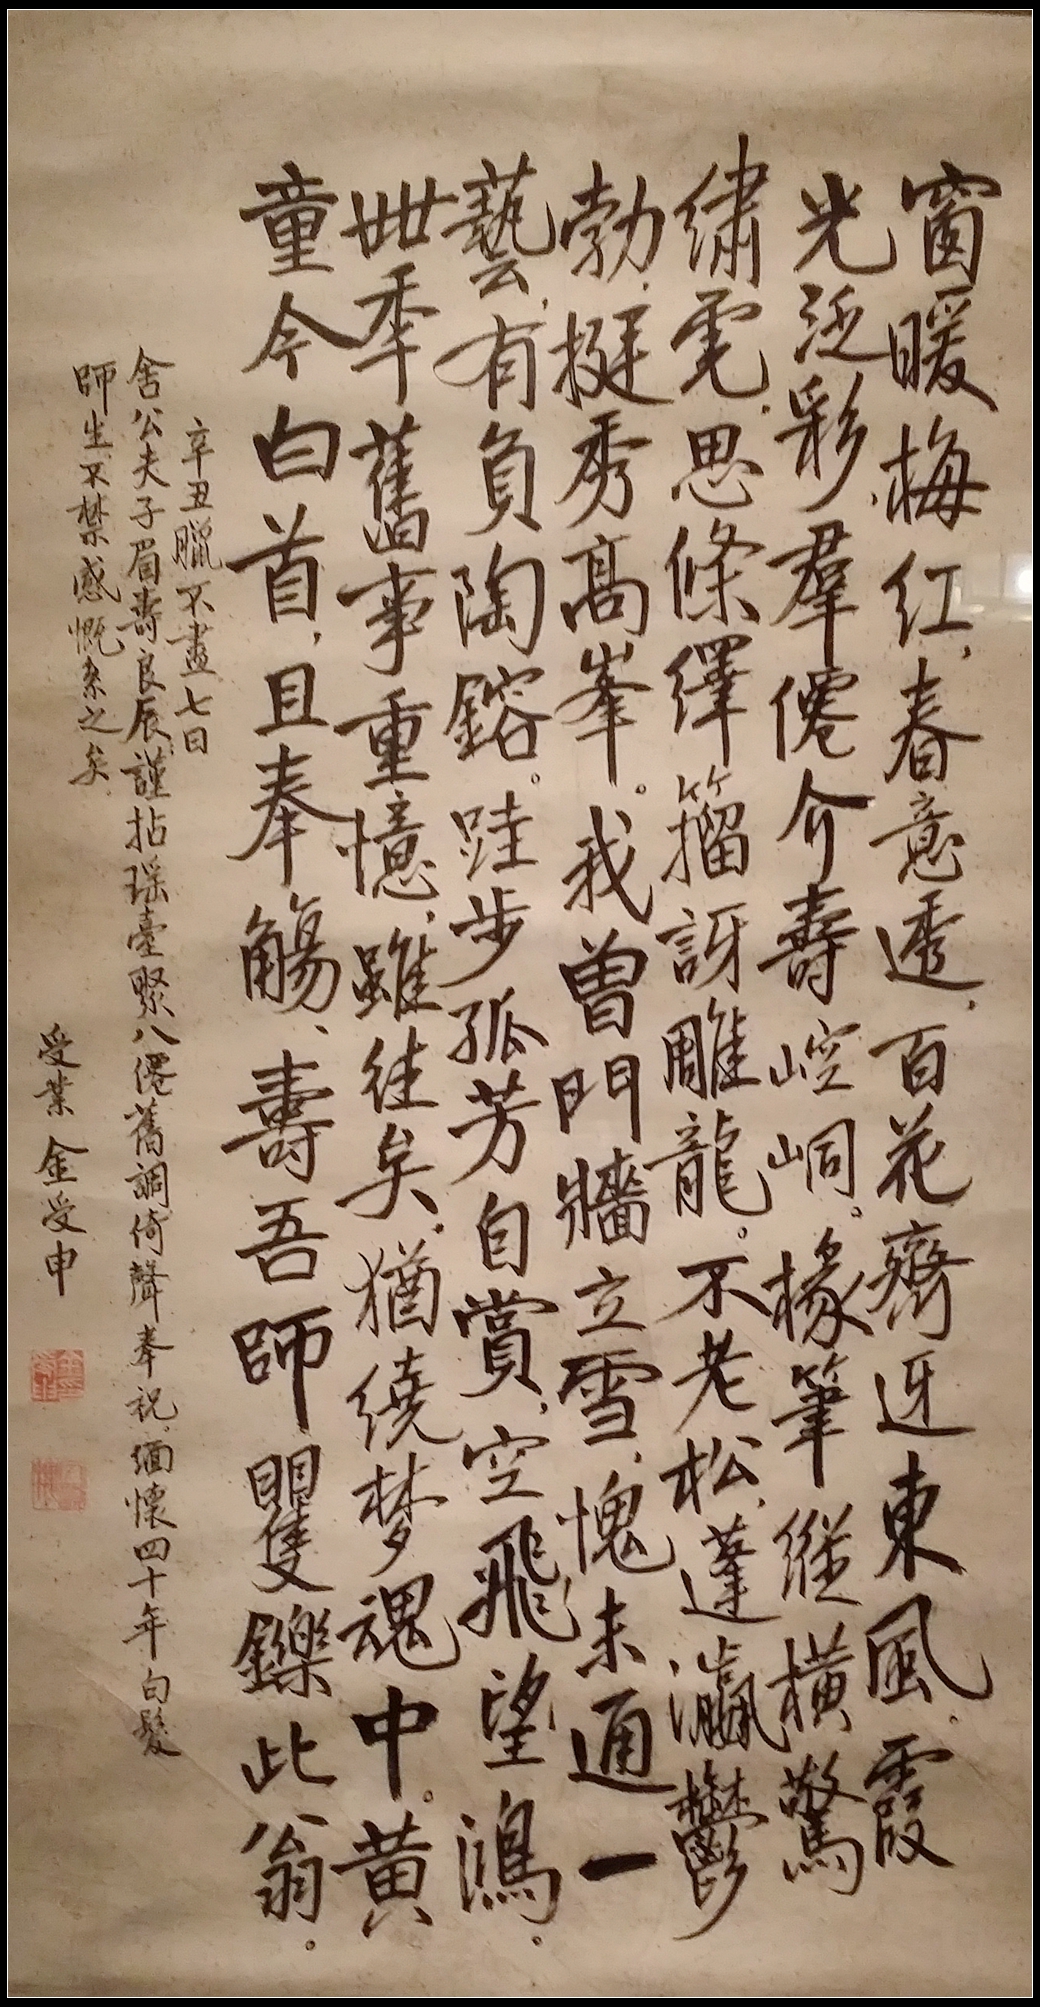 窗暖梅紅，春意透，百花齊迓東風。霞
光泛彩，羣僊介壽崆峒。椽筆縱橫驚
繡虎，思條繹籀訝雕龍。不老松，蓬瀛鬱
勃，挺秀高峯。我曾門牆立雪，愧未通一
藝，有負陶鎔。跬步孤芳自賞，空飛望鴻。
卅年舊事重憶，雖往矣，猶繞梦魂中。黃
童今白首，且奉觴、壽吾師矍鑠此翁。
辛丑臘不盡七日
舍公夫子眉壽良辰，謹拈瑶臺聚八僊舊調倚聲奉祝，緬懷四十年白髮
師生，不禁感慨系之矣
受業金受申